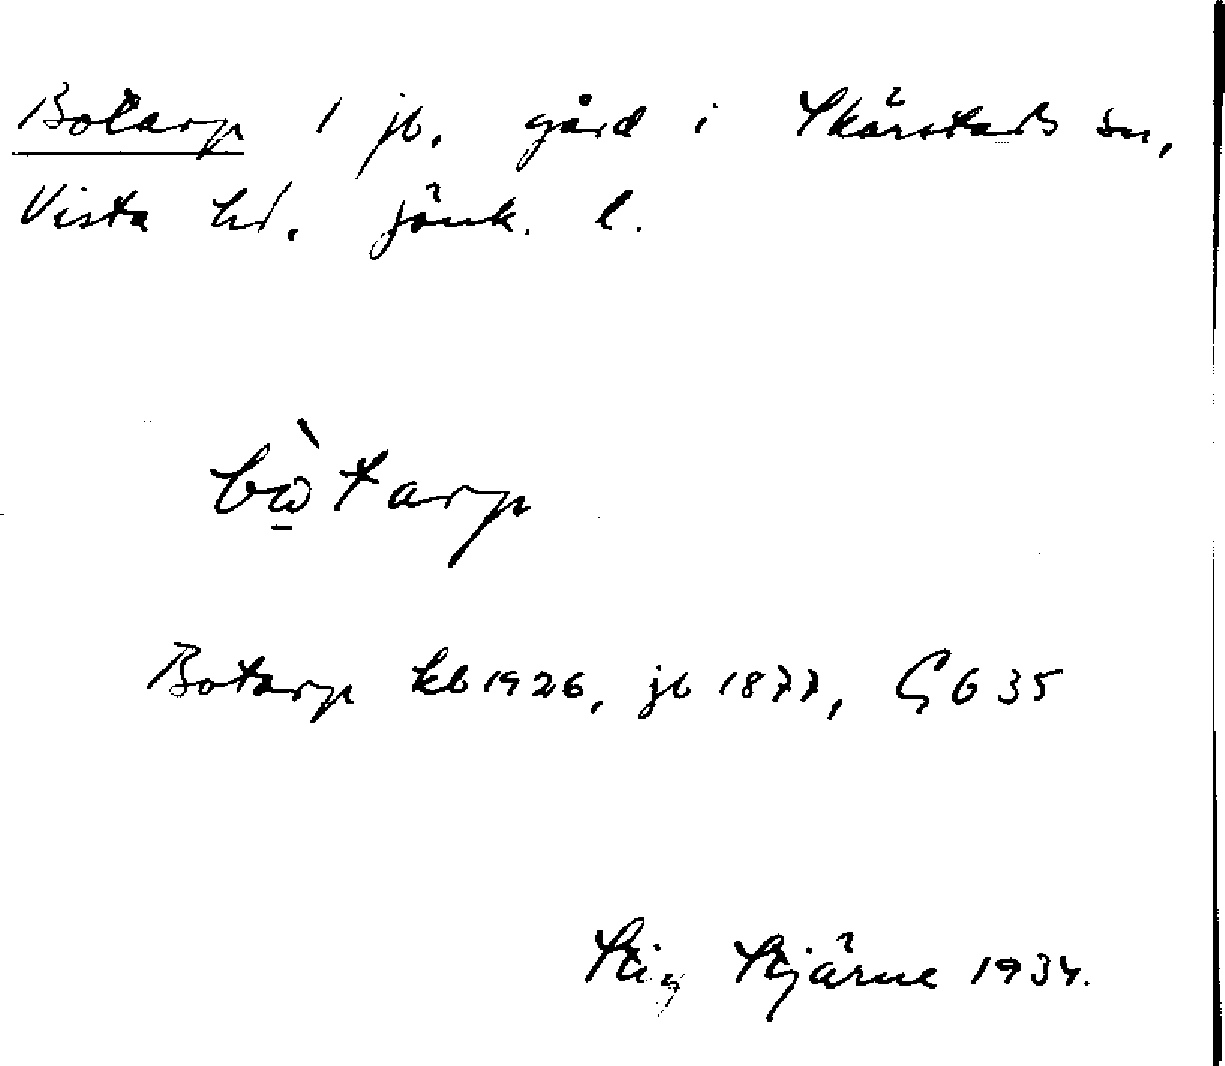 Botarp 1 jb. gård i Skärstads sn,
Vista hd. Jönk. l.
bὼ̱tarp
Botarp kb 1926, jb 1877, G 635
Stig Stjärne 1934.